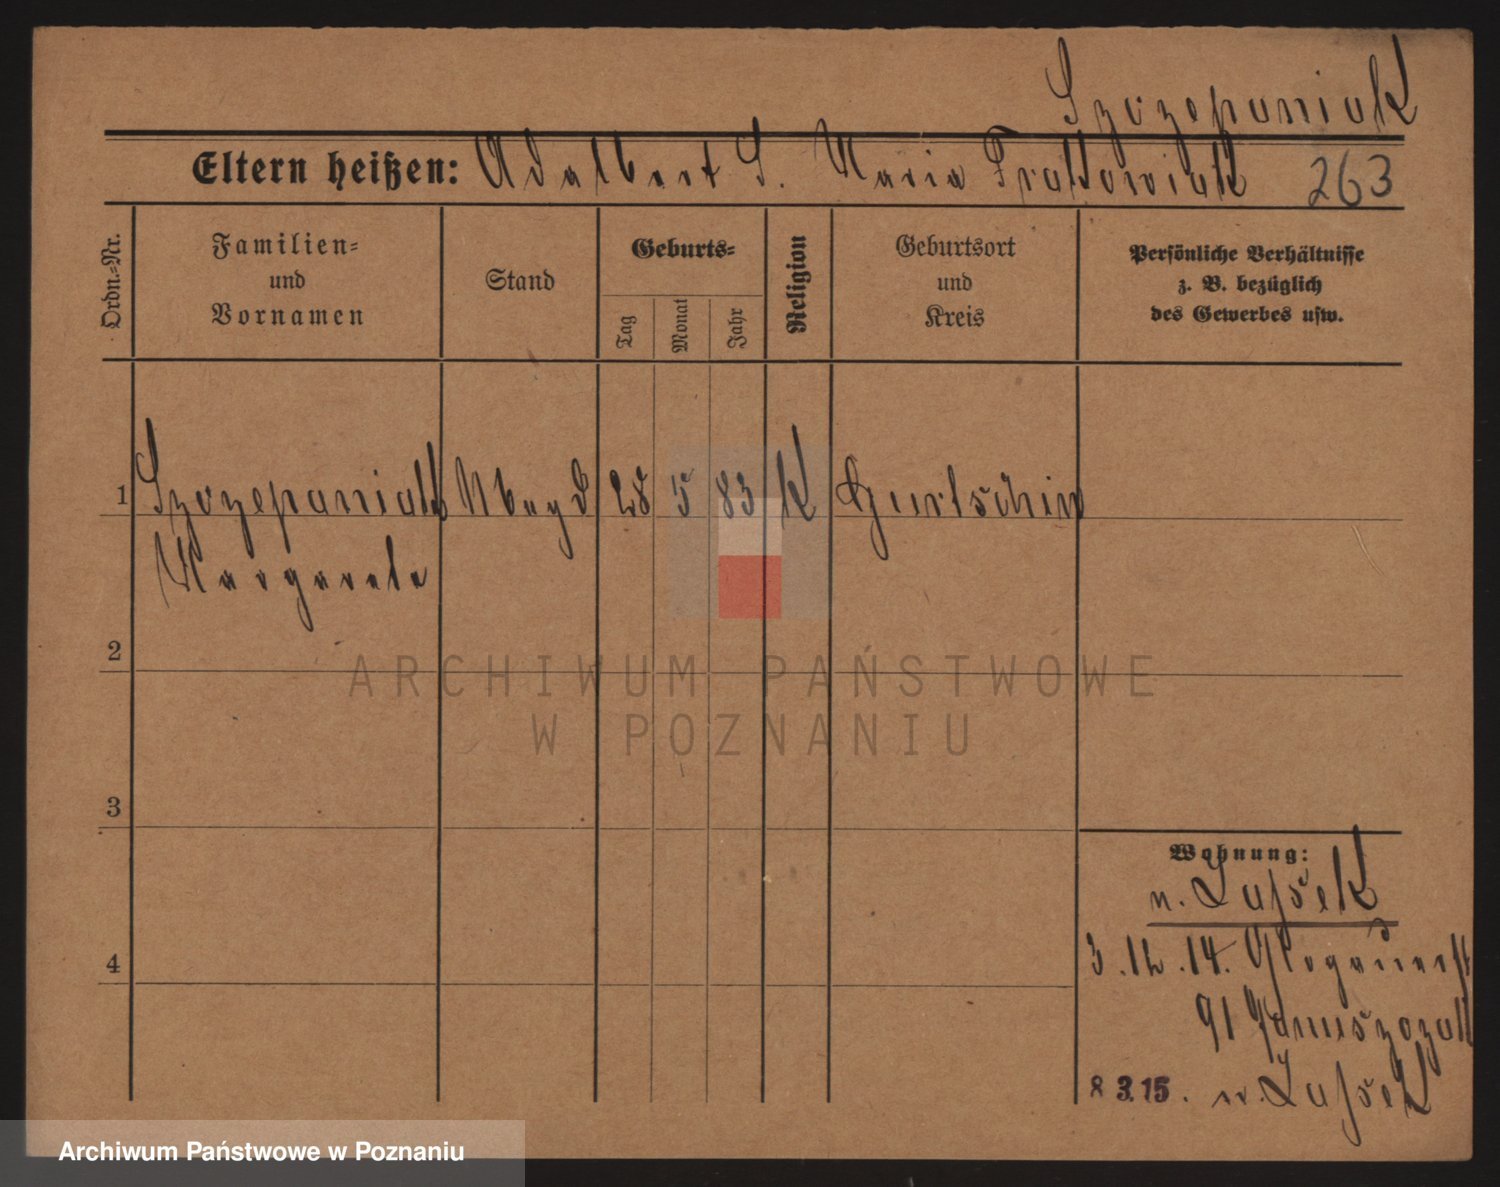 Szczepaniak
Eltern heißen: Adalbert S. Maria Fratkowiak 263
Ordn.=Nr.
Familien=
und
Vornamen
Stand
Geburts=
Tag
Monat
Jahr
Religion
Geburtsort
und
Kreis
Persönliche Verhältnisse
z. B. bezüglich
des Gewerbes usw.
1 Szczepaniak Magd 28 5 83 K Gurtschin
Margarete
2
3
4
Wohnung:
n. Lassek
3.12.14. Glogauerst
91 Januszczak
8 3.15. n. Lassek
ARCHIWUM PAŃSTWOWE
W POZNANIU
Archiwum Państwowe w Poznaniu